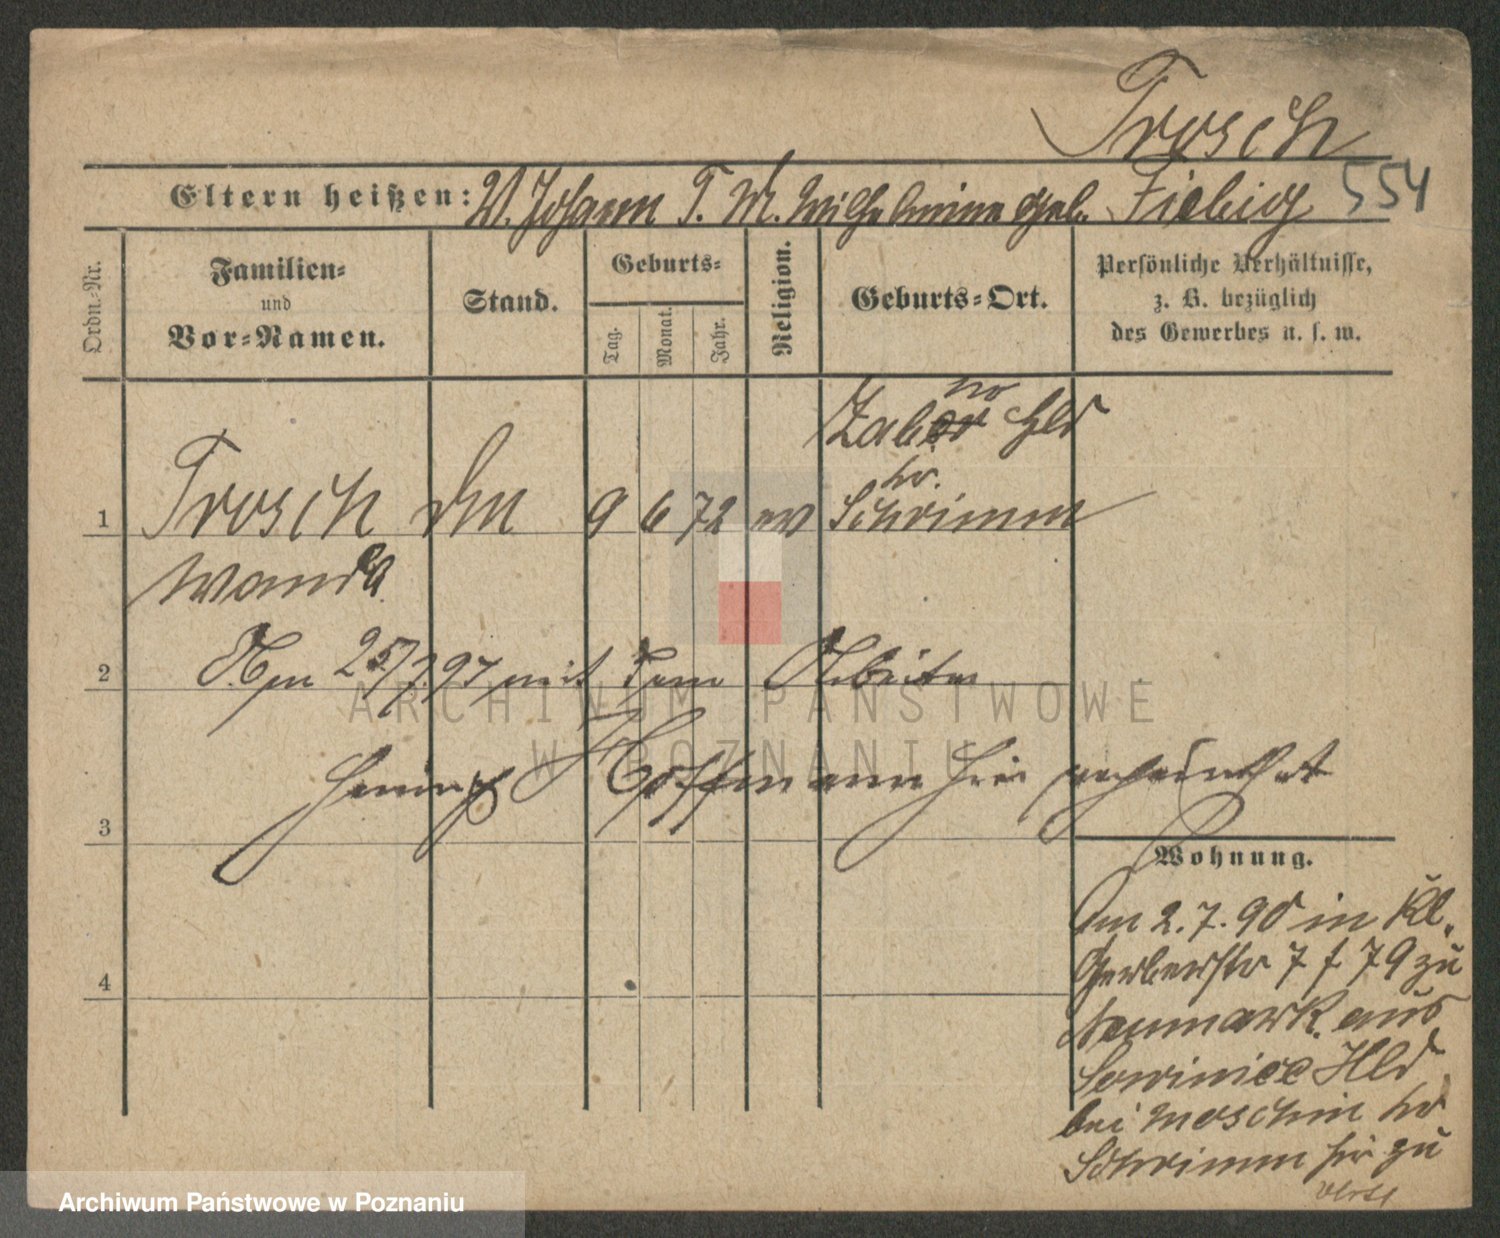 Trosch
Eltern heißen: V. Johann T. M. Wilhelmine geb. Fiebig 554
Ordn.-Nr.
Familien-
und
Vor-Namen.
Stand.
Geburts-
Tag.
Monat.
Jahr.
Religion.
Geburts-Ort.
Persönliche Verhältnisse,
z. B. bezüglich
des Gewerbes u. s. w.
no
Zabor Hld
Kr.
1 Trosch 9 6 72 ev Schrimm
Wanda
2 Am 25/7.97 mit dem Arbeiter
ARCHIWUM PAŃSTWOWE
W POZNANIU
Heinrich Hoffmann hier verheirathet
3
Wohnung.
4
Am 2.7.90 in Kl.
Gerberstr 7 f. 79 zu
Neumark aus
Sowiniec Hld
bei Moschin Kr
Schrimm hier zu
Archiwum Państwowe w Poznaniu